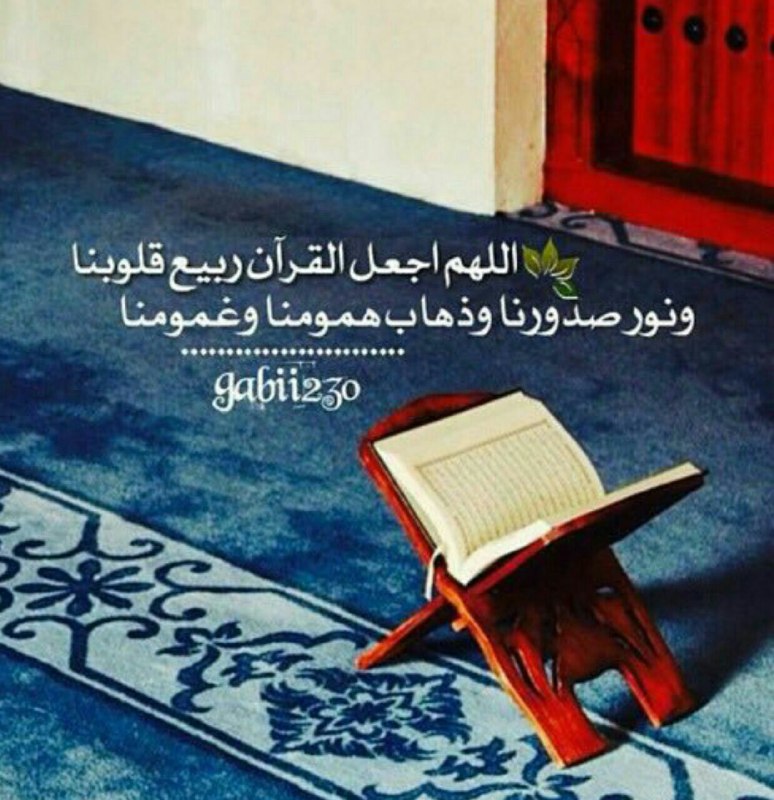 اللهم اجعل القرآن ربيع قلوبنا
ونور صدورنا وذهاب همومنا وغمومنا
gabii230